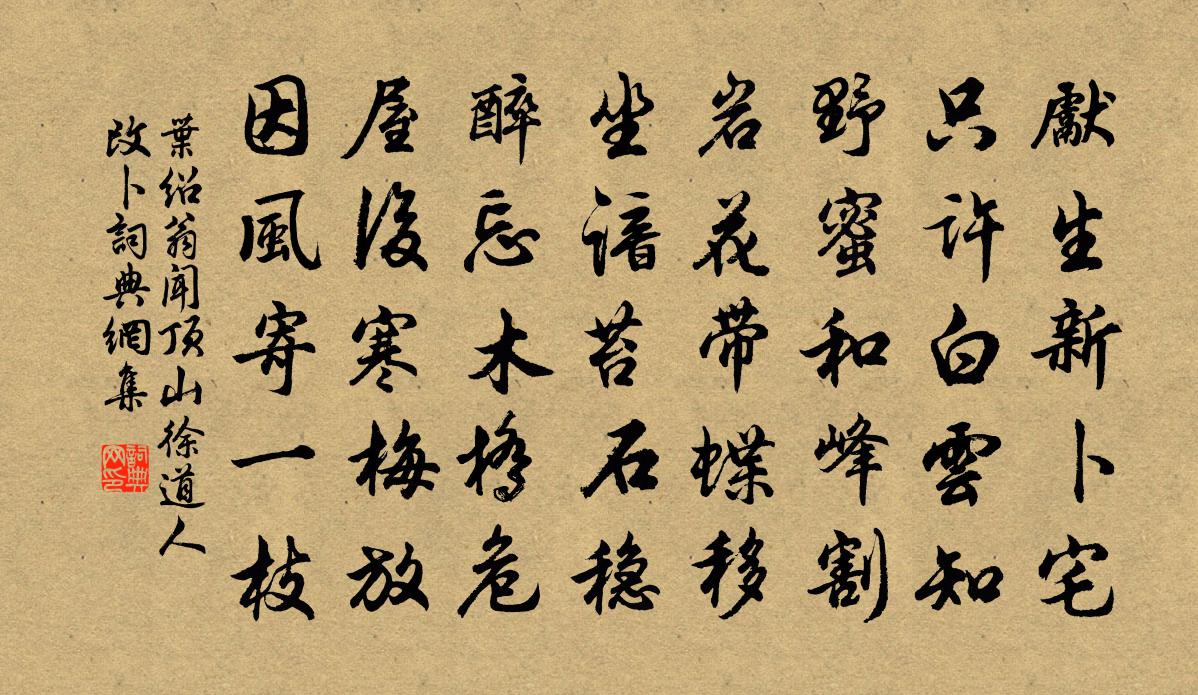 獻生新卜宅
只許白雲知
野蜜和峰割
岩花带蝶移
坐諳苔石稳
醉忘木橋危
屋後寒梅放
因風寄一枝
葉紹翁聞頂山徐道人
改卜詞典網集
詞典
网印